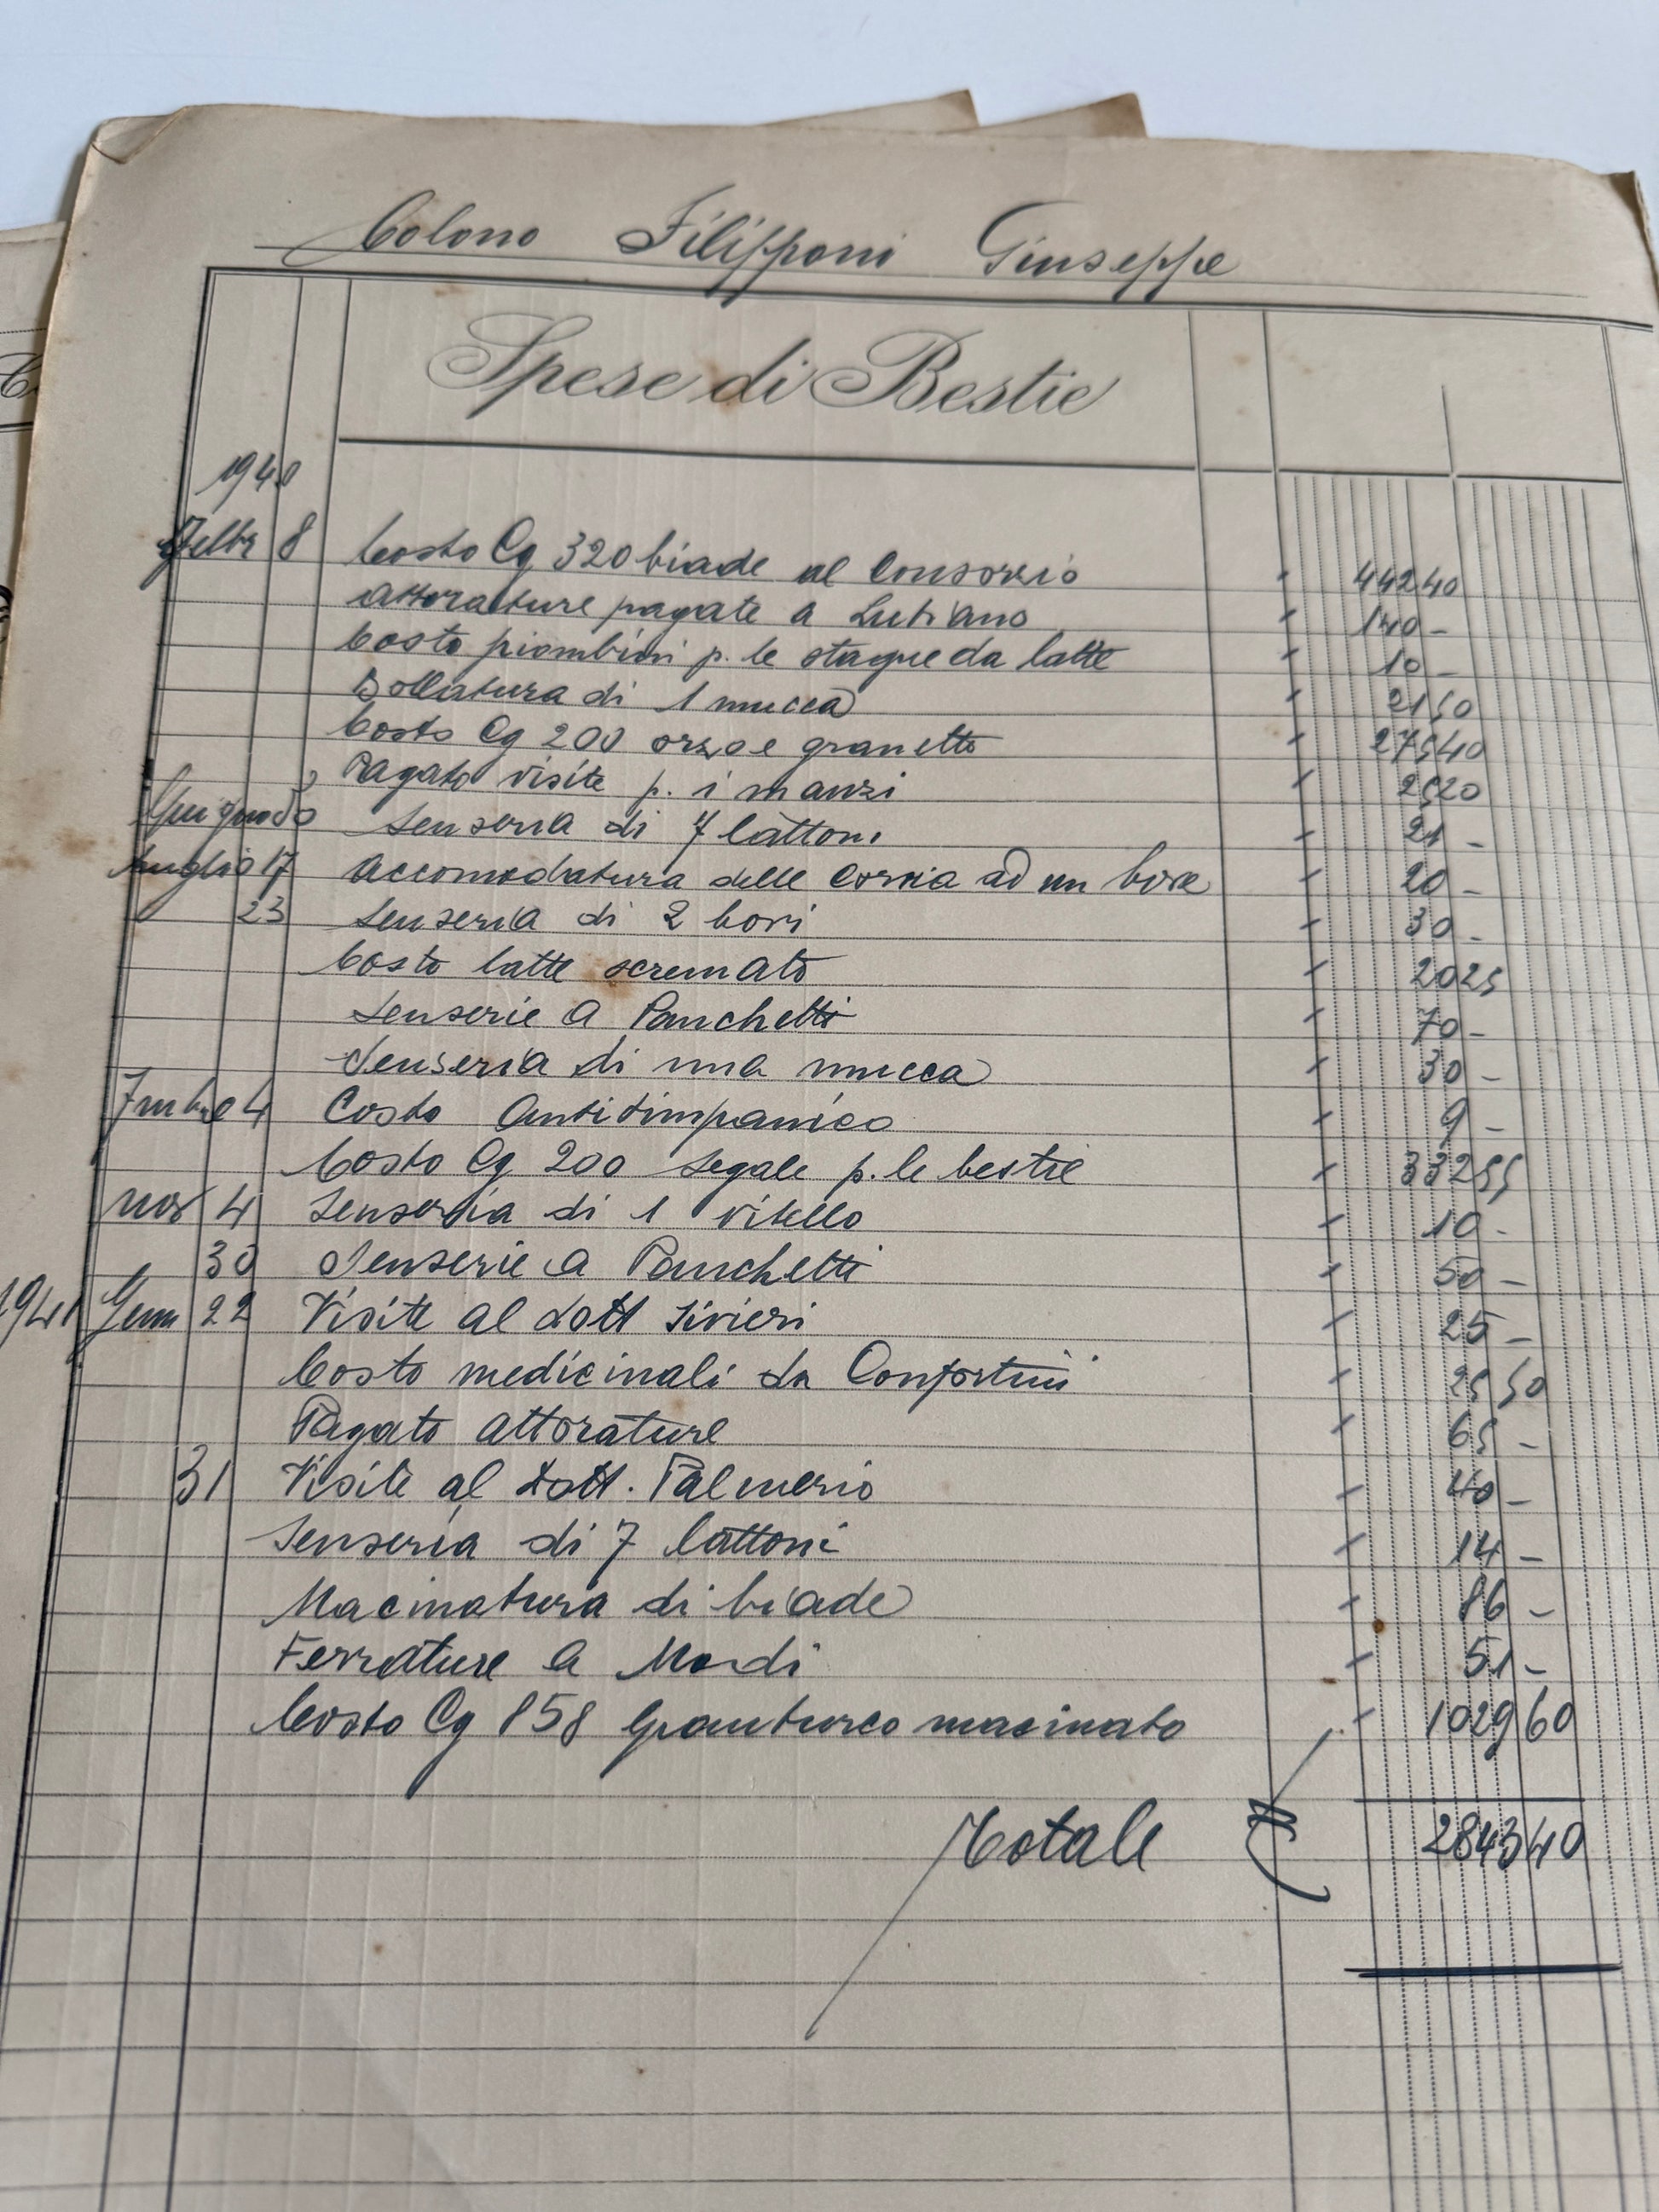 Colono Filipponi Giuseppe
Spese di Bestie
1940
Febbr 8 Costo Cg 320 biade al Consorzio " 442 40
Attorature pagate a Lutiano " 140 -
Costo piombini p. le stagne da latte " 10 -
Bollatura di 1 mucca " 21 50
Costo Cg 200 orzo e granetto " 275 40
Pagato visite p. i manzi " 25 20
Giugno 30 Senseria di 7 lattoni " 21 -
Luglio 17 Accomodatura delle Corna ad un bove " 20 -
23 Senseria di 2 bovi " 30 -
Costo latte scremato " 20 25
Senserie a Panchetti " 70 -
Senseria di una mucca " 30 -
7mbre 4 Costo Antitimpanico " 9 -
Costo Cg 200 segale p. le bestie " 332 55
nov 4 Senseria di 1 vitello " 10 -
30 Senserie a Panchetti " 50 -
1941 Genn 22 Visite al Dott Sivieri " 25 -
Costo medicinali da Confortini " 25 50
Pagato attorature " 65 -
31 Visite al Dott. Palmerio " 40 -
Senseria di 7 lattoni " 14 -
Macinatura di biade " 86 -
Ferrature a Mordi " 51 -
Costo Cg 858 Granturco macinato " 1029 60
Totale 2843 40